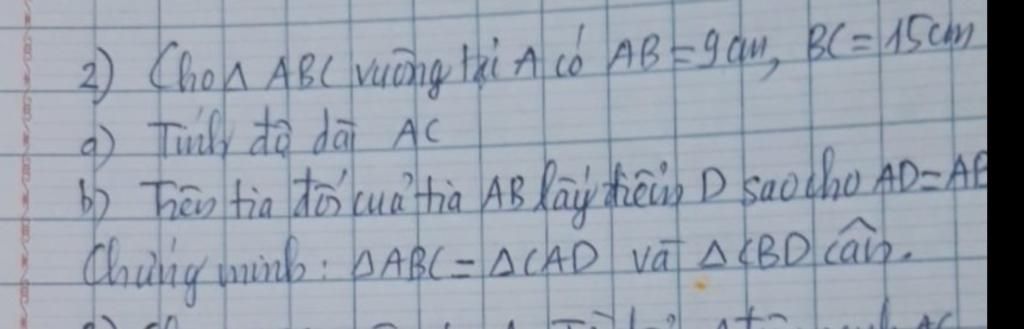 2) Cho Δ ABC vuông tại A có AB = 9cm, BC = 15cm
a) Tính độ dài AC
b) Trên tia đối của tia AB lấy điểm D sao cho AD = AB
Chứng minh: ΔABC = ΔCAD và ΔCBD cân.